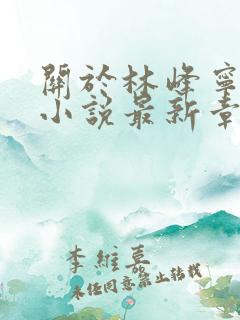 關於林峰寧
小說最新章
李維慕
未经同意禁止转载